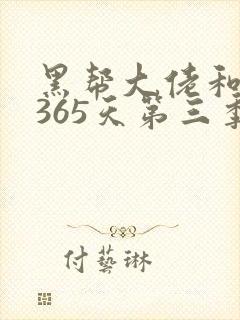 黑帮大佬和
365天第三季
付藝琳